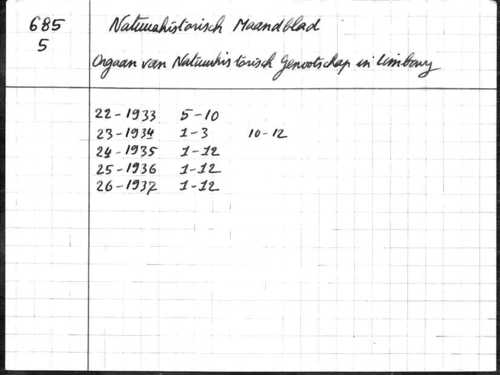 685 Natuurhistorisch Maandblad
5
Orgaan van Natuurhistorisch Genootschap in Limburg
22-1933 5-10
23-1934 1-3 10-12
24-1935 1-12
25-1936 1-12
26-1937 1-12